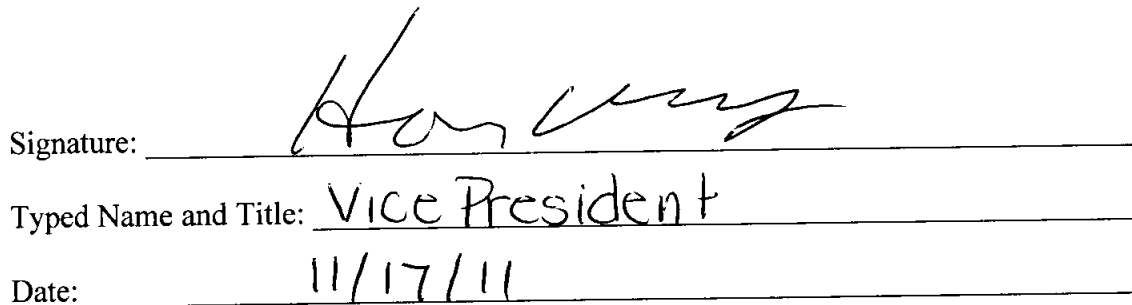 Signature:
Typed Name and Title: Vice President
Date: 11/17/11